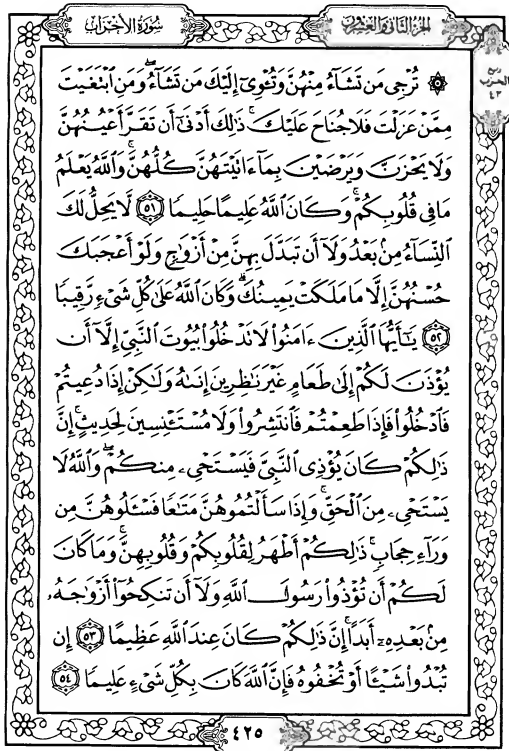 سُورَةُ الأَحْزَابِ
الجُزْءُ الثَّانِي وَالعِشْرُونَ
رُبْع
الحِزْب
٤٣
۞ تُرْجِي مَن تَشَآءُ مِنْهُنَّ وَتُـْٔوِيٓ إِلَيْكَ مَن تَشَآءُۖ وَمَنِ ٱبْتَغَيْتَ
مِمَّنْ عَزَلْتَ فَلَا جُنَاحَ عَلَيْكَۚ ذَٰلِكَ أَدْنَىٰٓ أَن تَقَرَّ أَعْيُنُهُنَّ
وَلَا يَحْزَنَّ وَيَرْضَيْنَ بِمَآ ءَاتَيْتَهُنَّ كُلُّهُنَّۚ وَٱللَّهُ يَعْلَمُ
مَا فِي قُلُوبِكُمْۚ وَكَانَ ٱللَّهُ عَلِيمًا حَلِيمًا ٥١ لَّا يَحِلُّ لَكَ
ٱلنِّسَآءُ مِنۢ بَعْدُ وَلَآ أَن تَبَدَّلَ بِهِنَّ مِنْ أَزْوَٰجٍ وَلَوْ أَعْجَبَكَ
حُسْنُهُنَّ إِلَّا مَا مَلَكَتْ يَمِينُكَۗ وَكَانَ ٱللَّهُ عَلَىٰ كُلِّ شَيْءٍ رَّقِيبًا
٥٢ يَٰٓأَيُّهَا ٱلَّذِينَ ءَامَنُوا۟ لَا تَدْخُلُوا۟ بُيُوتَ ٱلنَّبِيِّ إِلَّآ أَن
يُؤْذَنَ لَكُمْ إِلَىٰ طَعَامٍ غَيْرَ نَٰظِرِينَ إِنَىٰهُ وَلَٰكِنْ إِذَا دُعِيتُمْ
فَٱدْخُلُوا۟ فَإِذَا طَعِمْتُمْ فَٱنتَشِرُوا۟ وَلَا مُسْتَـْٔنِسِينَ لِحَدِيثٍۚ إِنَّ
ذَٰلِكُمْ كَانَ يُؤْذِي ٱلنَّبِيَّ فَيَسْتَحْيِۦ مِنكُمْۖ وَٱللَّهُ لَا
يَسْتَحْيِۦ مِنَ ٱلْحَقِّۚ وَإِذَا سَأَلْتُمُوهُنَّ مَتَٰعًا فَسْـَٔلُوهُنَّ مِن
وَرَآءِ حِجَابٍۚ ذَٰلِكُمْ أَطْهَرُ لِقُلُوبِكُمْ وَقُلُوبِهِنَّۚ وَمَا كَانَ
لَكُمْ أَن تُؤْذُوا۟ رَسُولَ ٱللَّهِ وَلَآ أَن تَنكِحُوٓا۟ أَزْوَٰجَهُۥ
مِنۢ بَعْدِهِۦٓ أَبَدًاۚ إِنَّ ذَٰلِكُمْ كَانَ عِندَ ٱللَّهِ عَظِيمًا ٥٣ إِن
تُبْدُوا۟ شَيْـًٔا أَوْ تُخْفُوهُ فَإِنَّ ٱللَّهَ كَانَ بِكُلِّ شَيْءٍ عَلِيمًا ٥٤
٤٢٥